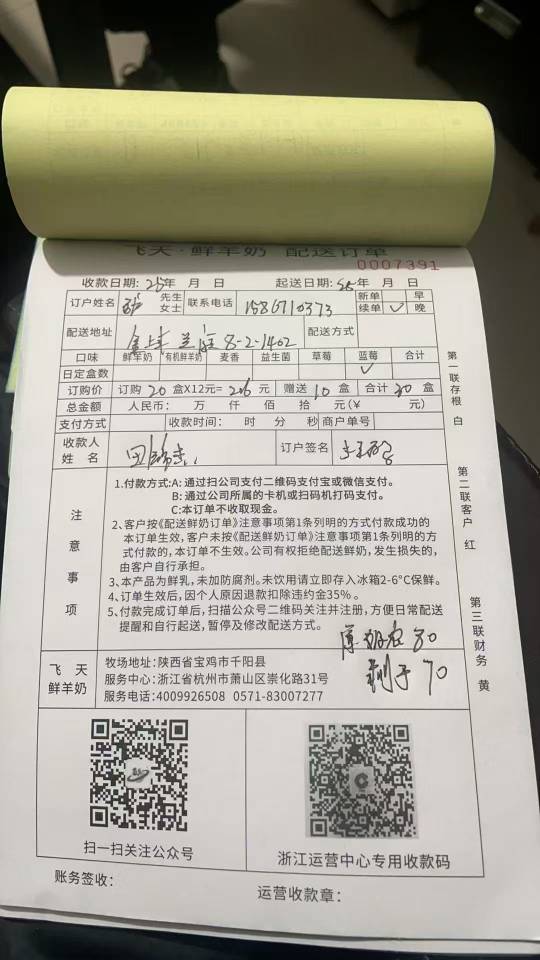 飞天·鲜羊奶 配送订单
0007391
收款日期: 25年 月 日 起送日期: 年 月 日
订户姓名 先生 女士 联系电话 1586710373 新单 早
续单 ✓ 晚
配送地址 8-2-1402 配送方式
口味 鲜羊奶 有机鲜羊奶 麦香 益生菌 草莓 蓝莓 合计
日定盒数 ✓
订购价 订购 20 盒X12元= 元 赠送 10 盒 合计 30 盒
总金额 人民币: 万 仟 佰 拾 元(¥ 元)
支付方式 收款时间: 时 分 秒 商户单号
收款人姓名 订户签名
注意事项
1.付款方式:A: 通过扫公司支付二维码支付宝或微信支付。
B: 通过公司所属的卡机或扫码机打码支付。
C:本订单不收取现金。
2、客户按《配送鲜奶订单》注意事项第1条列明的方式付款成功的
本订单生效,客户未按《配送鲜奶订单》注意事项第1条列明的方
式付款的,本订单不生效。公司有权拒绝配送鲜奶,发生损失的,
由客户自行承担。
3、本产品为鲜乳,未加防腐剂。未饮用请立即存入冰箱2-6°C保鲜。
4、订单生效后,因个人原因退款扣除违约金35%。
5、付款完成订单后,扫描公众号二维码关注并注册,方便日常配送
提醒和自行起送,暂停及修改配送方式。
80
70
飞天 鲜羊奶
牧场地址:陕西省宝鸡市千阳县
服务中心:浙江省杭州市萧山区崇化路31号
服务电话:4009926508 0571-83007277
第一联存根 白
第二联客户 红
第三联财务 黄
扫一扫关注公众号
浙江运营中心专用收款码
账务签收:
运营收款章: